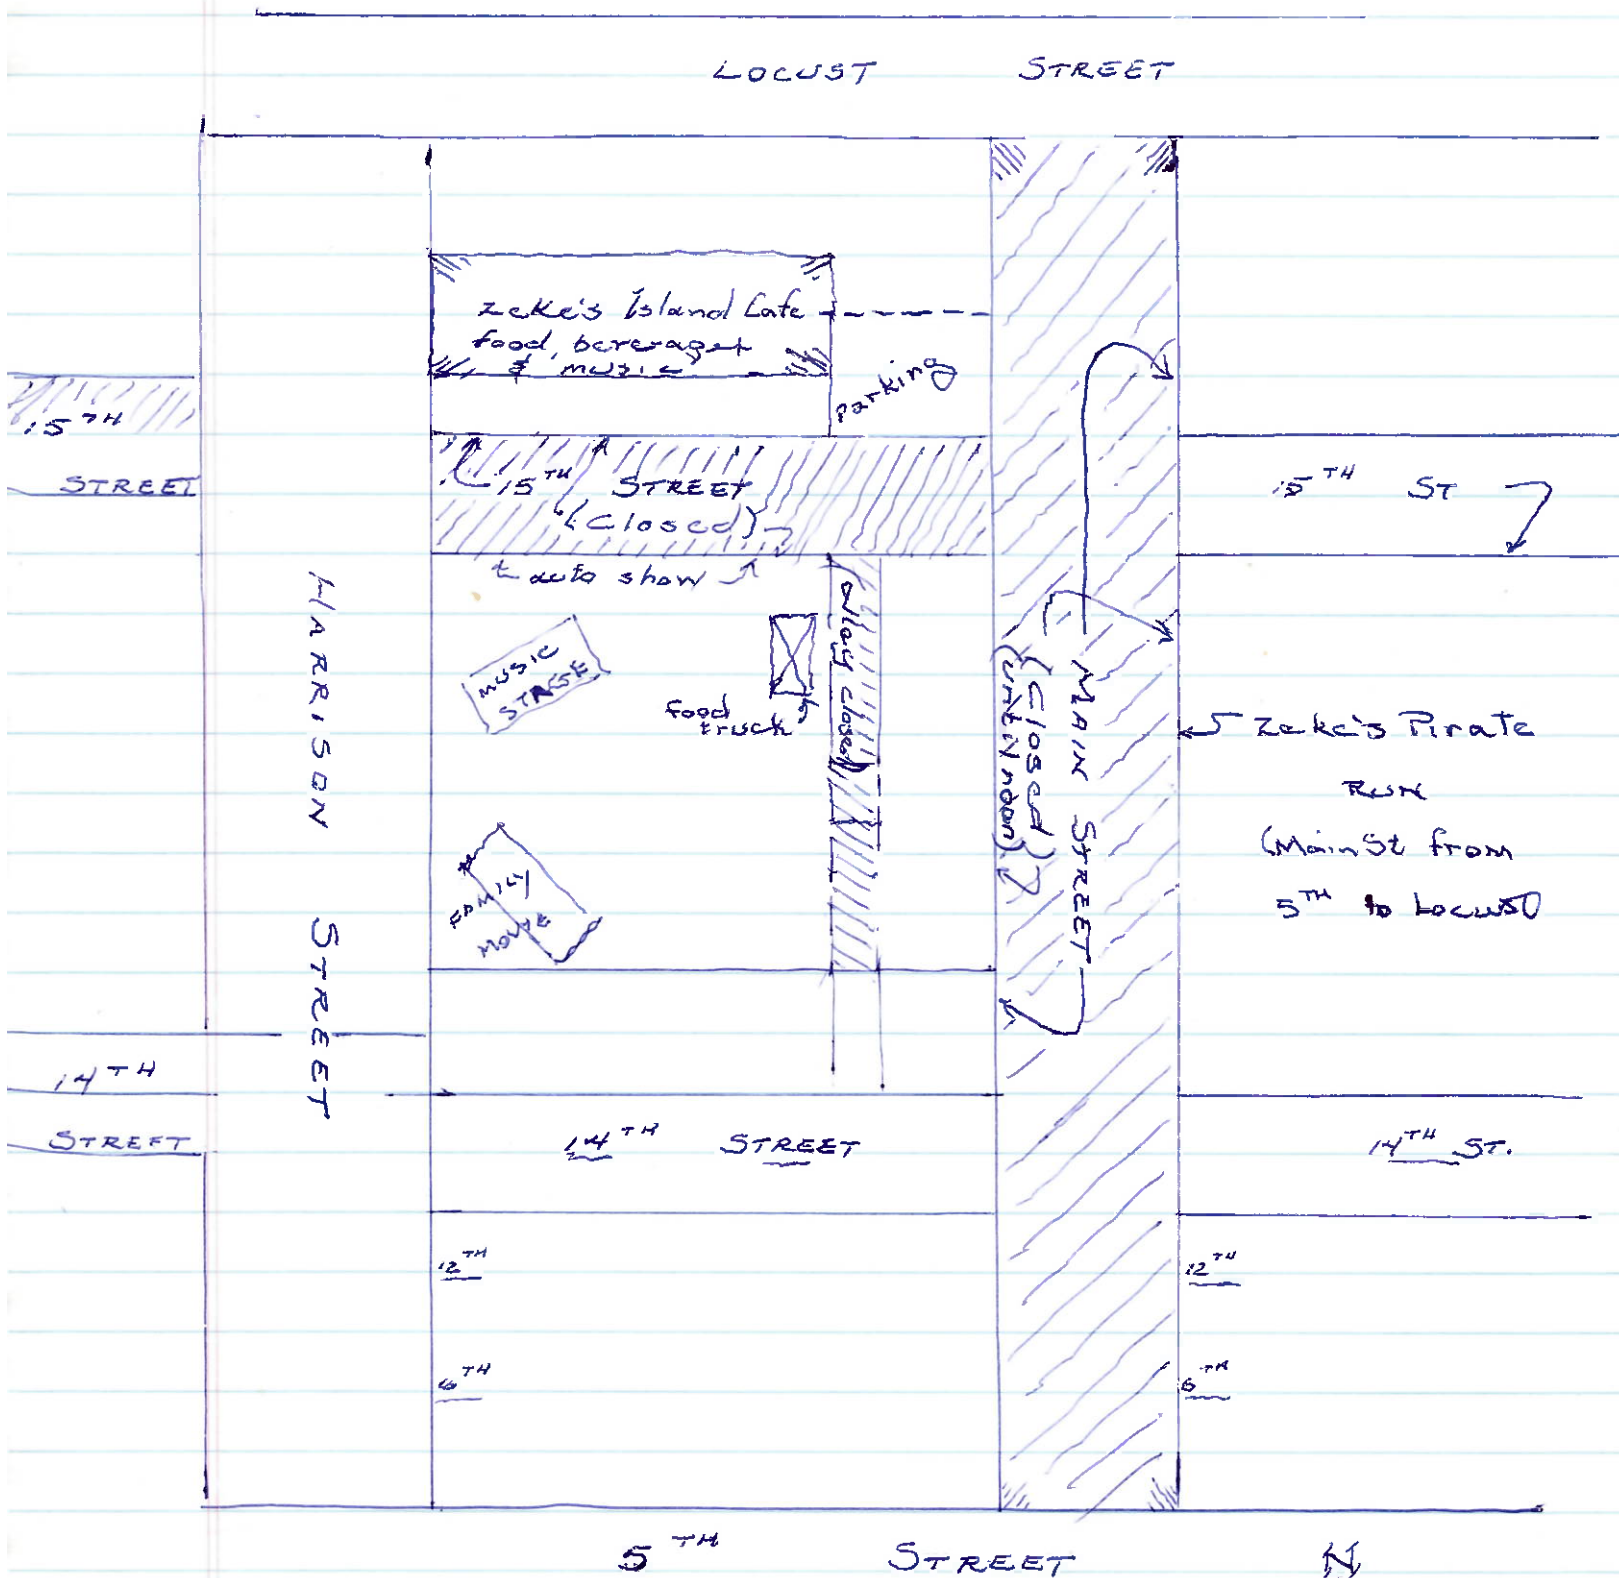 LOCUST STREET
Zeke's Island Cafe
food, beverages
& music
parking
15TH
STREET
15TH STREET
(Closed)
15TH ST
auto show
MUSIC
STAGE
food
truck
alley closed
HARRISON STREET
MAIN STREET
(Closed)
(until noon)
Zeke's Pirate
RUN
(Main St from
5TH to Locust)
FAMILY
MOVIE
14TH
STREET
14TH STREET
14TH ST.
12TH
12TH
6TH
6TH
5TH STREET
N